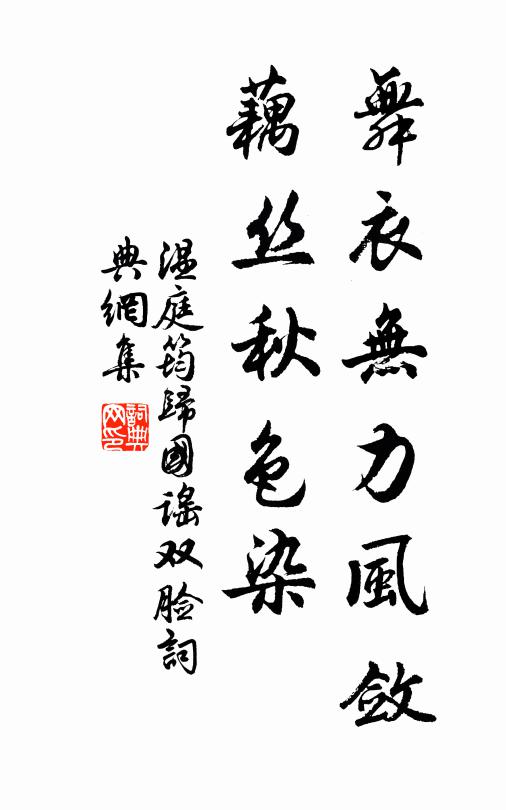 舞衣無力風斂
藕丝秋色染
温庭筠歸國謠双脸詞
典網集
詞典
网印